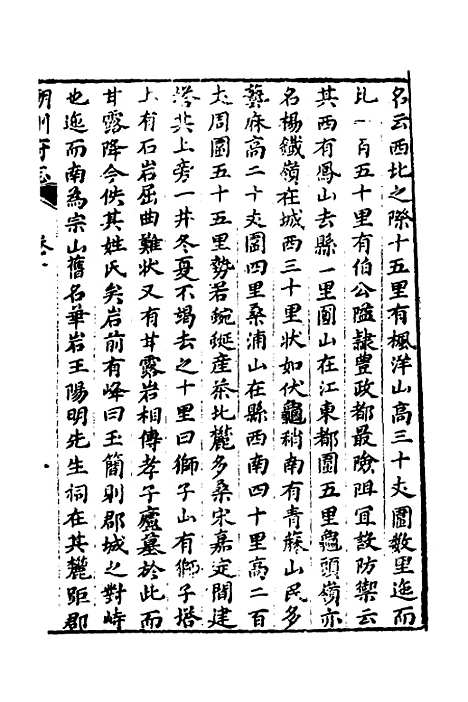 名云西北之際十五里有楓洋山高三十丈圍數里迤而
北一百五十里有伯公隘隸豊政都最險阻宜設防禦云
其西有鳳山去縣一里圓山在江東都圍五里龜頭嶺亦
名楊鐵嶺在城西三十里狀如伏龜稍南有青蔴山民多
藝麻高二十丈圍四里桑浦山在縣西南四十里高二百
丈周圍五十五里勢若蜿蜒產茶北麓多桑宋嘉定間建
塔其上旁一井冬夏不竭去之十里曰獅子山有獅子塔
上有石岩屈曲難狀又有甘露岩相傳孝子廬墓於此而
甘露降今佚其姓氏矣岩前有峰曰玉簡則郡城之對峙
也迤而南為宗山舊名華岩王陽明先生祠在其麓距郡
州府志
卷